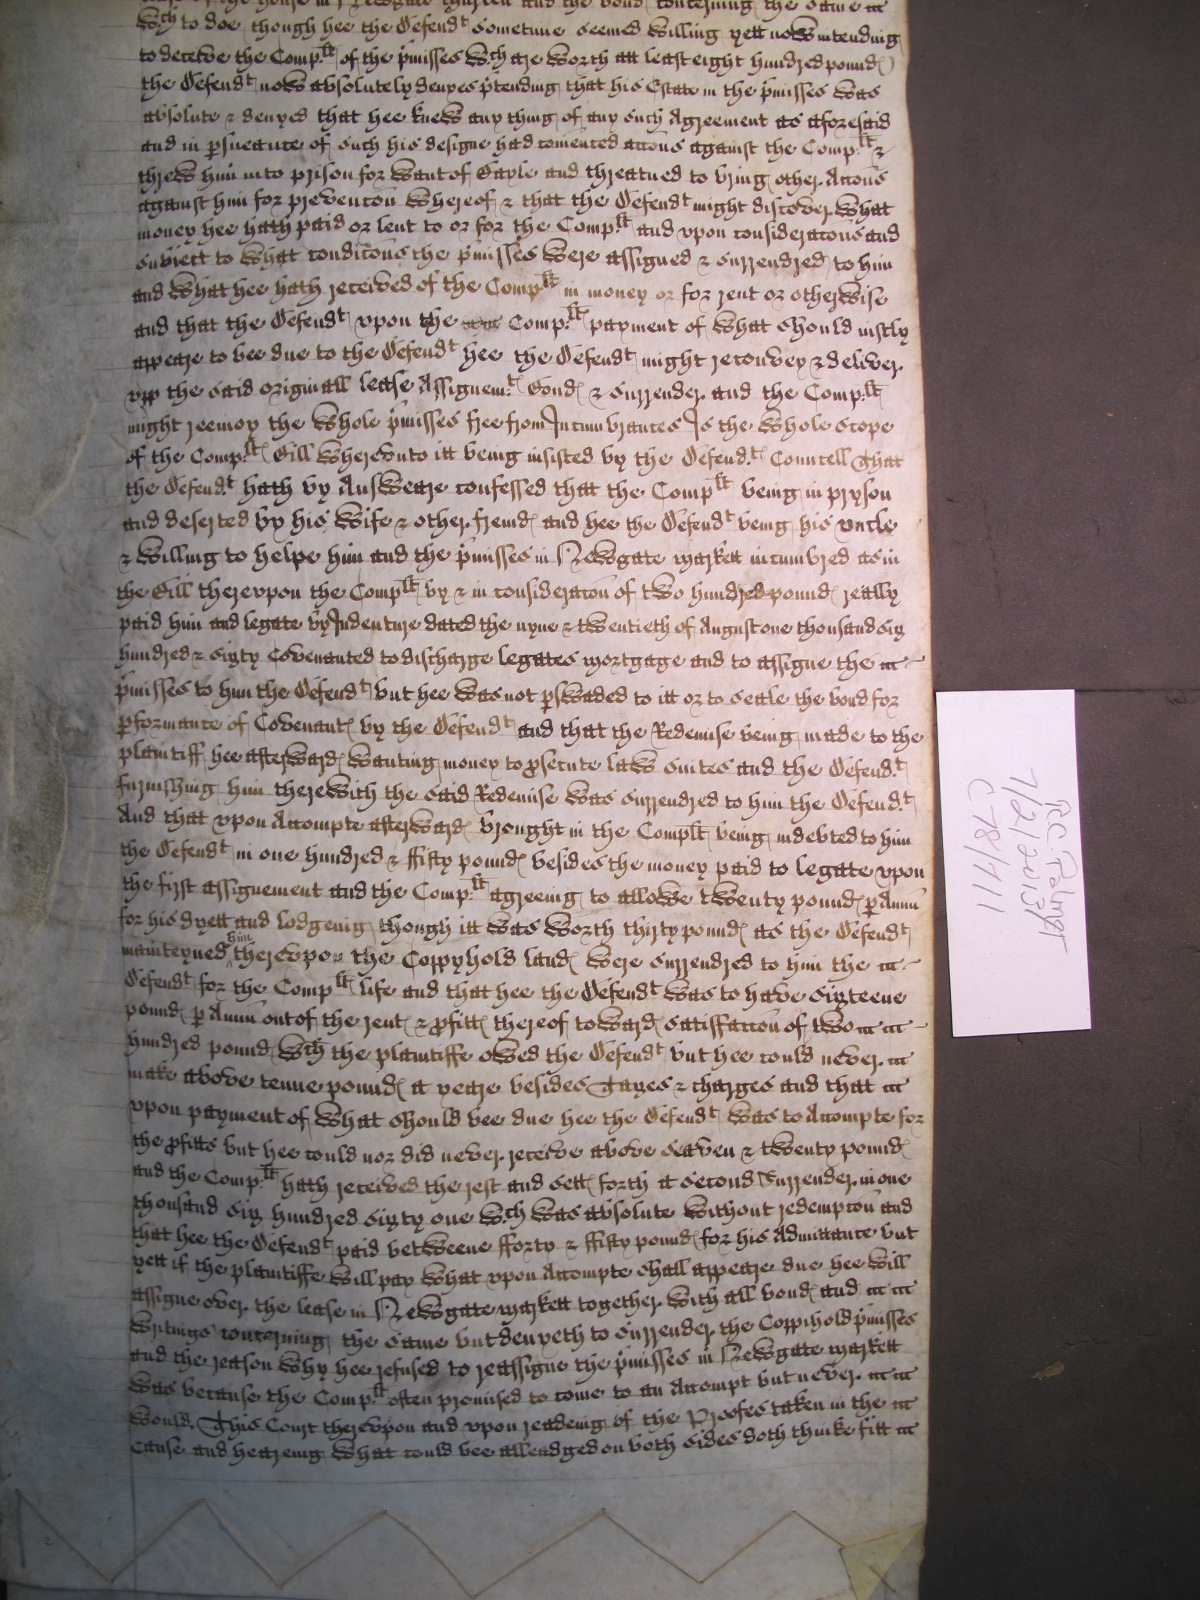 lease of the house in Newgate Markett and the bond concerning the same
wch to doe, though hee the Defendt sometime seemed willing yett now intending
to deceive the Complt of the pmisses wch are worth att least eight hundred pound
the Defendt now absolutely denyes ptending that his Estate in the pmisses was
absolute & denyed that hee knew any thing of any such Agreement as aforesaid
and in psueance of such his designe had comenced accons against the Complt &
threw him into prison for want of Bayle and threatned to bring other Accons
against him for prevencon whereof & that the Defendt might discover what
money hee hath paid or lent to or for the Complt and upon consideracons and
subiect to what condicons the pmisses were assigned & surrendred to him
and what hee hath received of the Complt in money or for rent or otherwise
and that the Defendt upon the Complt payment of what should iustly
appeare to bee due to the Defendt hee the Defendt might reconvey & deliver
upp the said originall lease Assignemt Bond & surrender and the Complt
might reenioy the whole pmisses free from Incumbrances Is the whole scope
of the Complt Bill whereunto itt being insisted by the Defendt Councell That
the Defendt hath by Answeare confessed that the Complt being in pryson
and deserted by his wife & other freind and hee the Defendt being his uncle
& willing to helpe him and the pmisses in Newgate markett incumbred as in
the Bill thereupon the Complt by & in consideracon of two hundred pound really
paid him and legate by Indenture dated the nyne & twentieth of August one thousand six
hundred & sixty Covenanted to discharge legates mortgage and to assigne the
pmisses to him the Defendt but hee was not pswaded to itt or to seale the bond for
pformance of Covenant by the Defendt and that the Redemise being made to the
plaintiff hee afterward wanting money to psecute law suites and the Defendt
furnishing him therewith the said Redemise was surrendred to him the Defendt
And that upon Accompte afterward brought in the Complt being indebted to him
the Defendt in one hundred & ffifty pound besides the money paid to legate upon
the first assignement and the Complt agreeing to allowe twenty pound p Annu
for his dyett and lodgeing though itt was worth thirty pound as the Defendt
mainteyned him thereupon the Coppyhold land were surrendred to him the
Defendt for the Complt life and that hee the Defendt was to have sixteene
pound p Annu out of the rent & pfitt thereof toward satisfaccon of two
hundred pound wch the plaintiffe owed the Defendt but hee could never
make above tenne pound a yeare besides Taxes & charges and that
upon payment of what should bee due hee the Defendt was to Accompte for
the pfitts but hee could nor did never receive above seaven & twenty pound
and the Complt hath received the rest and sett forth a second Surrender in one
thousand six hundred sixty one wch was absolute without redempcon and
that hee the Defendt paid betweene fforty & ffifty pound for his Admittance but
yett if the plaintiffe will pay what upon Accompte shall appeare due hee will
assigne over the lease in Newgate markett together with all bond and
writings concerning the same but denyeth to surrender the Coppihold pmisses
and the reason why hee refused to reassigne the pmisses in Newgate markett
was because the Complt often promised to come to an Accompt but never
would. This Court thereupon and upon readeing of the Proofes taken in the
Cause and heareing what could bee alleadged on both sides doth thinke fitt
Rec: Palmer
7/2/2013
C 78/711